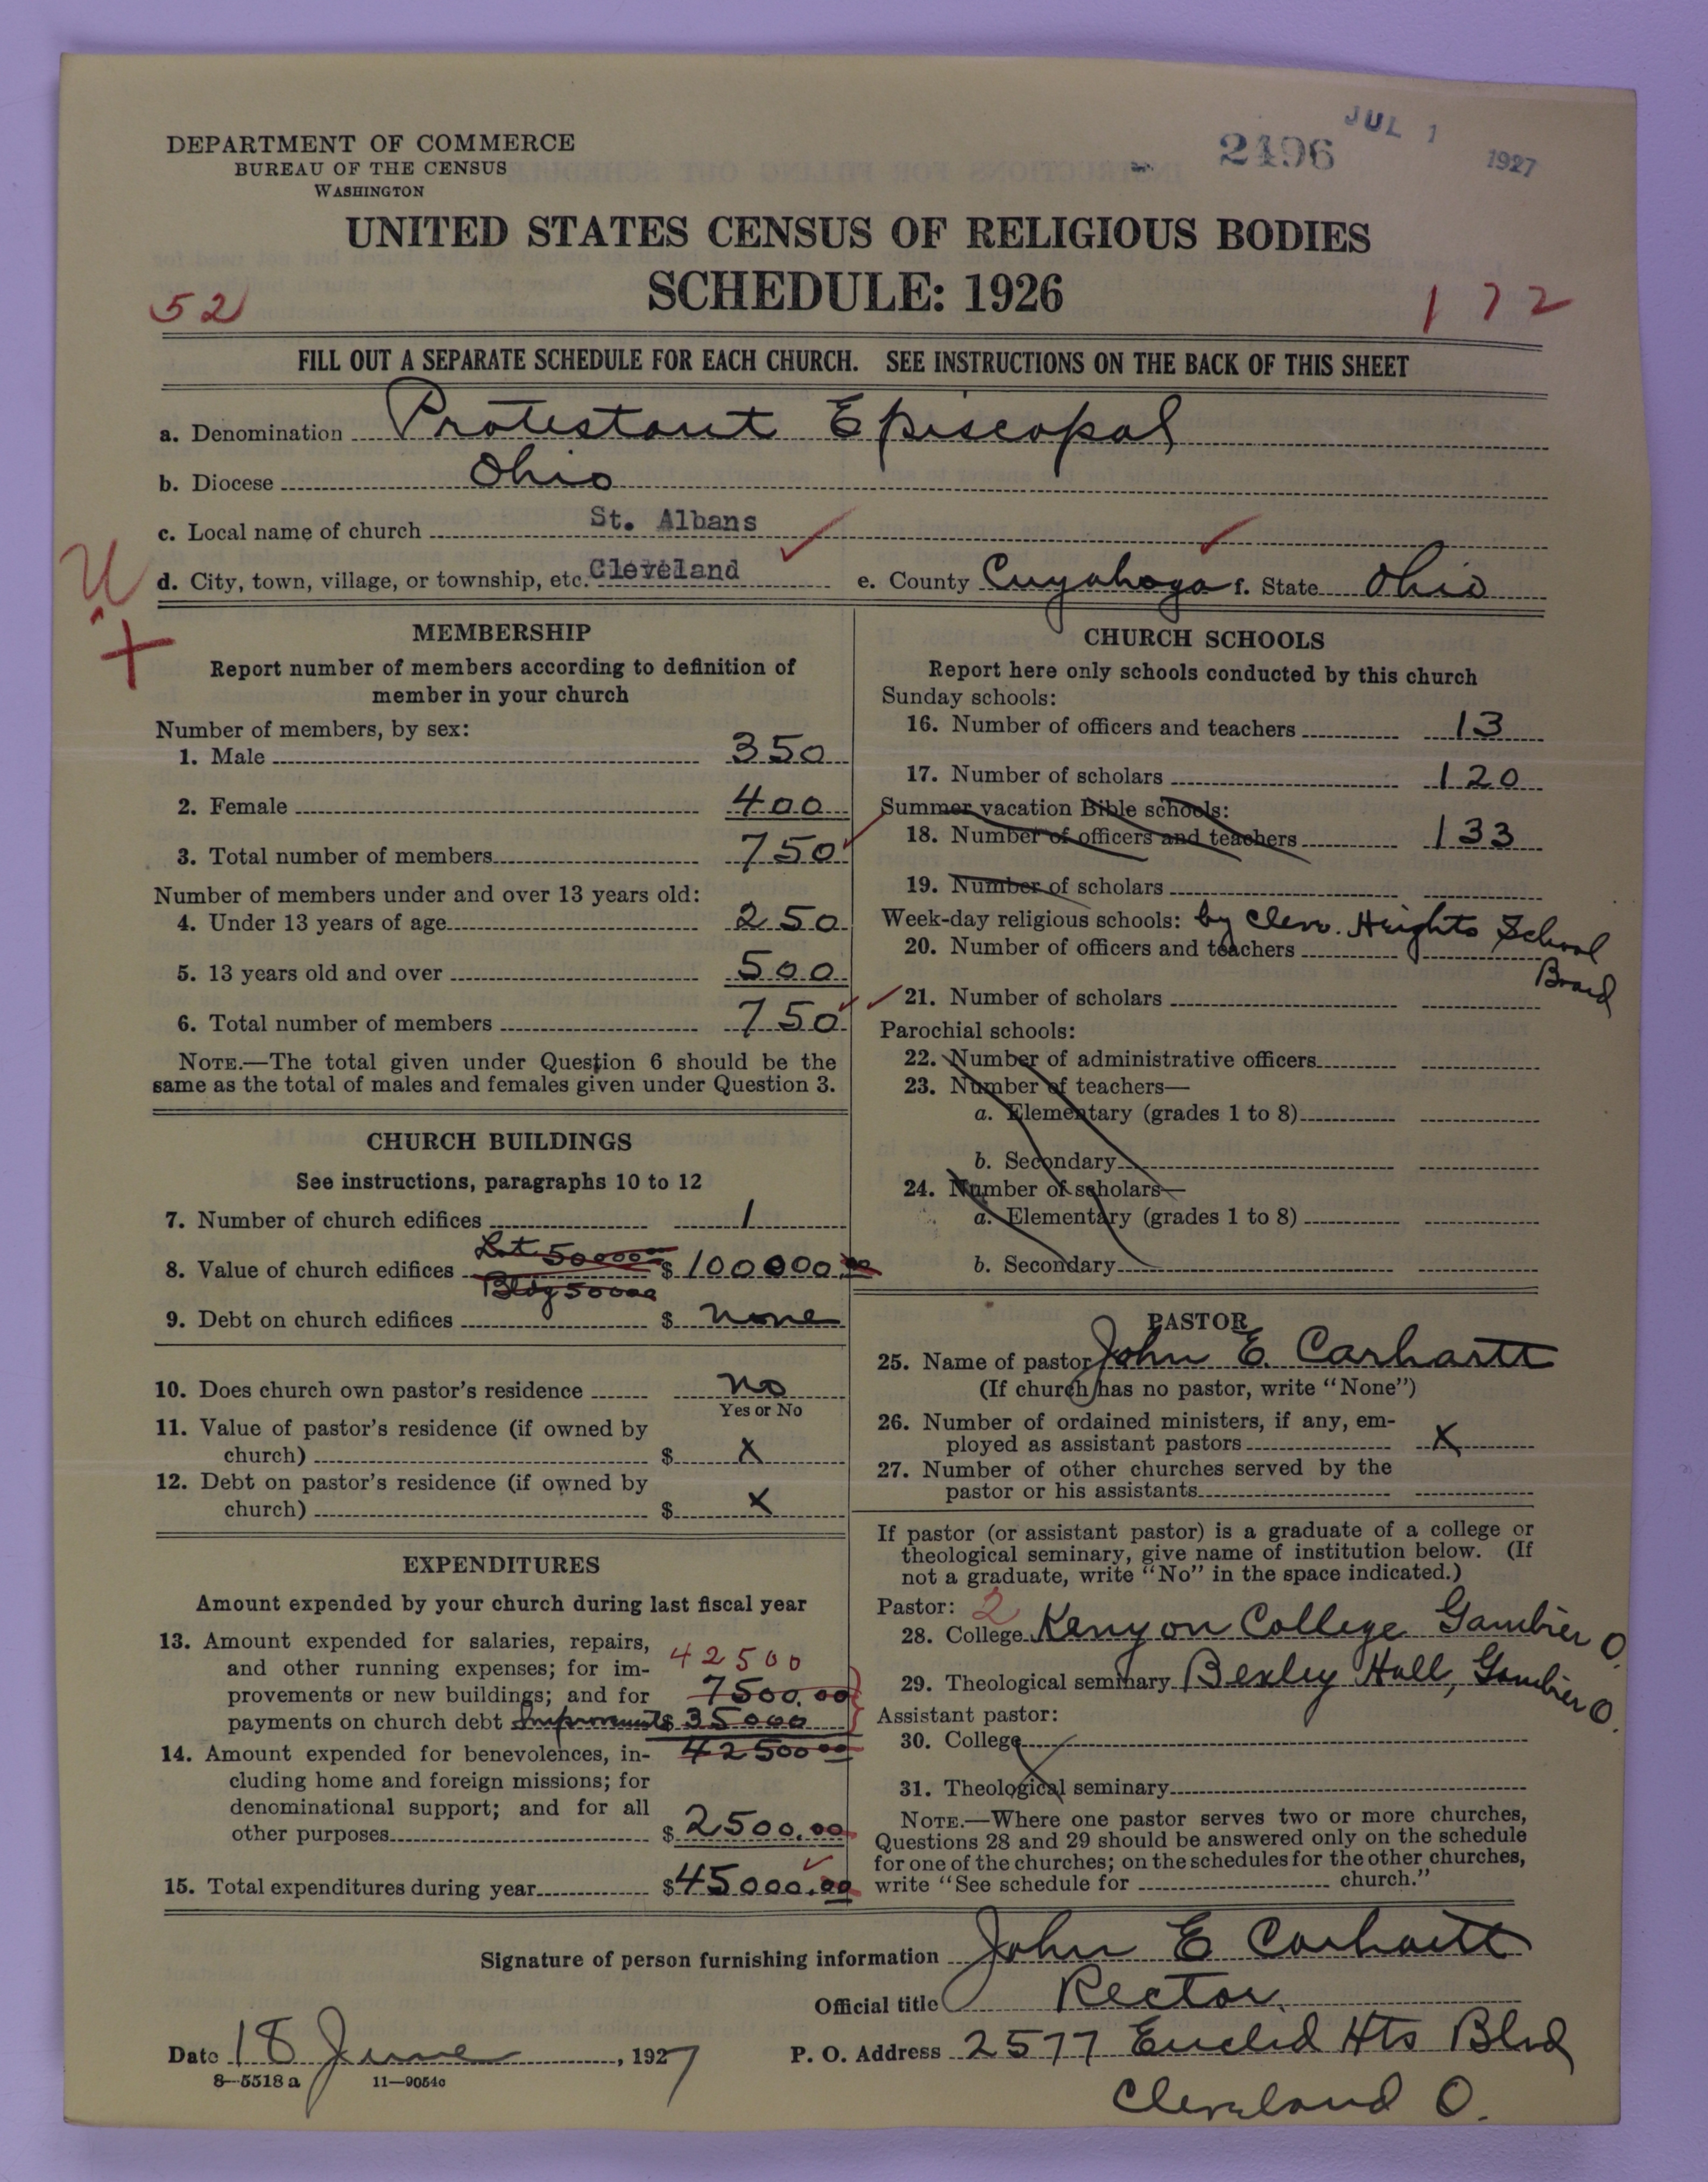 DEPARTMENT OF COMMERCE
BUREAU OF THE CENSUS
WASHINGTON
2496
JUL 1 1927
UNITED STATES CENSUS OF RELIGIOUS BODIES
SCHEDULE: 1926
52
172
FILL OUT A SEPARATE SCHEDULE FOR EACH CHURCH. SEE INSTRUCTIONS ON THE BACK OF THIS SHEET
a. Denomination Protestant Episcopal
b. Diocese Ohio
c. Local name of church St. Albans
d. City, town, village, or township, etc. Cleveland e. County Cuyahoga f. State Ohio
MEMBERSHIP
Report number of members according to definition of
member in your church
Number of members, by sex:
1. Male 350
2. Female 400
3. Total number of members 750
Number of members under and over 13 years old:
4. Under 13 years of age 250
5. 13 years old and over 500
6. Total number of members 750
NOTE.—The total given under Question 6 should be the
same as the total of males and females given under Question 3.
CHURCH BUILDINGS
See instructions, paragraphs 10 to 12
7. Number of church edifices 1
Lot 50000.00
8. Value of church edifices $ 100000.00
Bldg 50000
9. Debt on church edifices $ none
10. Does church own pastor's residence no
Yes or No
11. Value of pastor's residence (if owned by
church) $ X
12. Debt on pastor's residence (if owned by
church) $ X
EXPENDITURES
Amount expended by your church during last fiscal year
13. Amount expended for salaries, repairs,
and other running expenses; for im- 42500
provements or new buildings; and for 7500.00
payments on church debt Improvements $ 35000
14. Amount expended for benevolences, in- 42500.00
cluding home and foreign missions; for
denominational support; and for all
other purposes $ 2500.00
15. Total expenditures during year $ 45000.00
CHURCH SCHOOLS
Report here only schools conducted by this church
Sunday schools:
16. Number of officers and teachers 13
17. Number of scholars 120
Summer vacation Bible schools:
18. Number of officers and teachers 133
19. Number of scholars
Week-day religious schools: by Cleve. Heights School
20. Number of officers and teachers Board
21. Number of scholars
Parochial schools:
22. Number of administrative officers
23. Number of teachers—
a. Elementary (grades 1 to 8)
b. Secondary
24. Number of scholars—
a. Elementary (grades 1 to 8)
b. Secondary
PASTOR
25. Name of pastor John E. Carhartt
(If church has no pastor, write "None")
26. Number of ordained ministers, if any, em-
ployed as assistant pastors X
27. Number of other churches served by the
pastor or his assistants
If pastor (or assistant pastor) is a graduate of a college or
theological seminary, give name of institution below. (If
not a graduate, write "No" in the space indicated.)
Pastor: 2
28. College Kenyon College Gambier O.
29. Theological seminary Bexley Hall, Gambier O.
Assistant pastor:
30. College
31. Theological seminary
NOTE.—Where one pastor serves two or more churches,
Questions 28 and 29 should be answered only on the schedule
for one of the churches; on the schedules for the other churches,
write "See schedule for church."
Signature of person furnishing information John E Carhartt
Official title Rector.
Date 18 June, 1927 P. O. Address 2577 Euclid Hts Blvd
8—5518 a 11—9054c
Cleveland O.